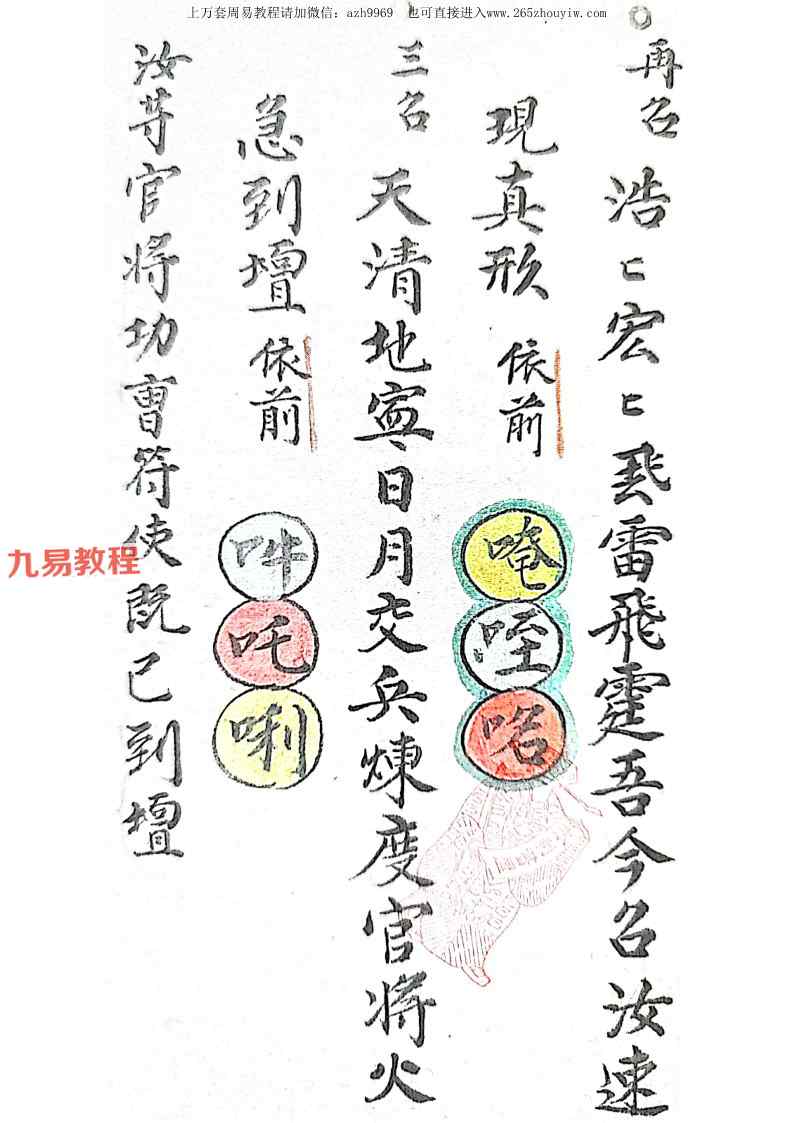 上万套周易教程请加微信：azh9969 也可直接进入www.265zhouyiw.com
再召 浩〻宏〻飛雷飛霆吾今召汝速
現真形 依前 唵 咥 㗩
三召 天清地寕日月交兵煉度官將火
急到壇 依前 吽 吒 唎
汝等官將功曹符使既已到壇
九易教程